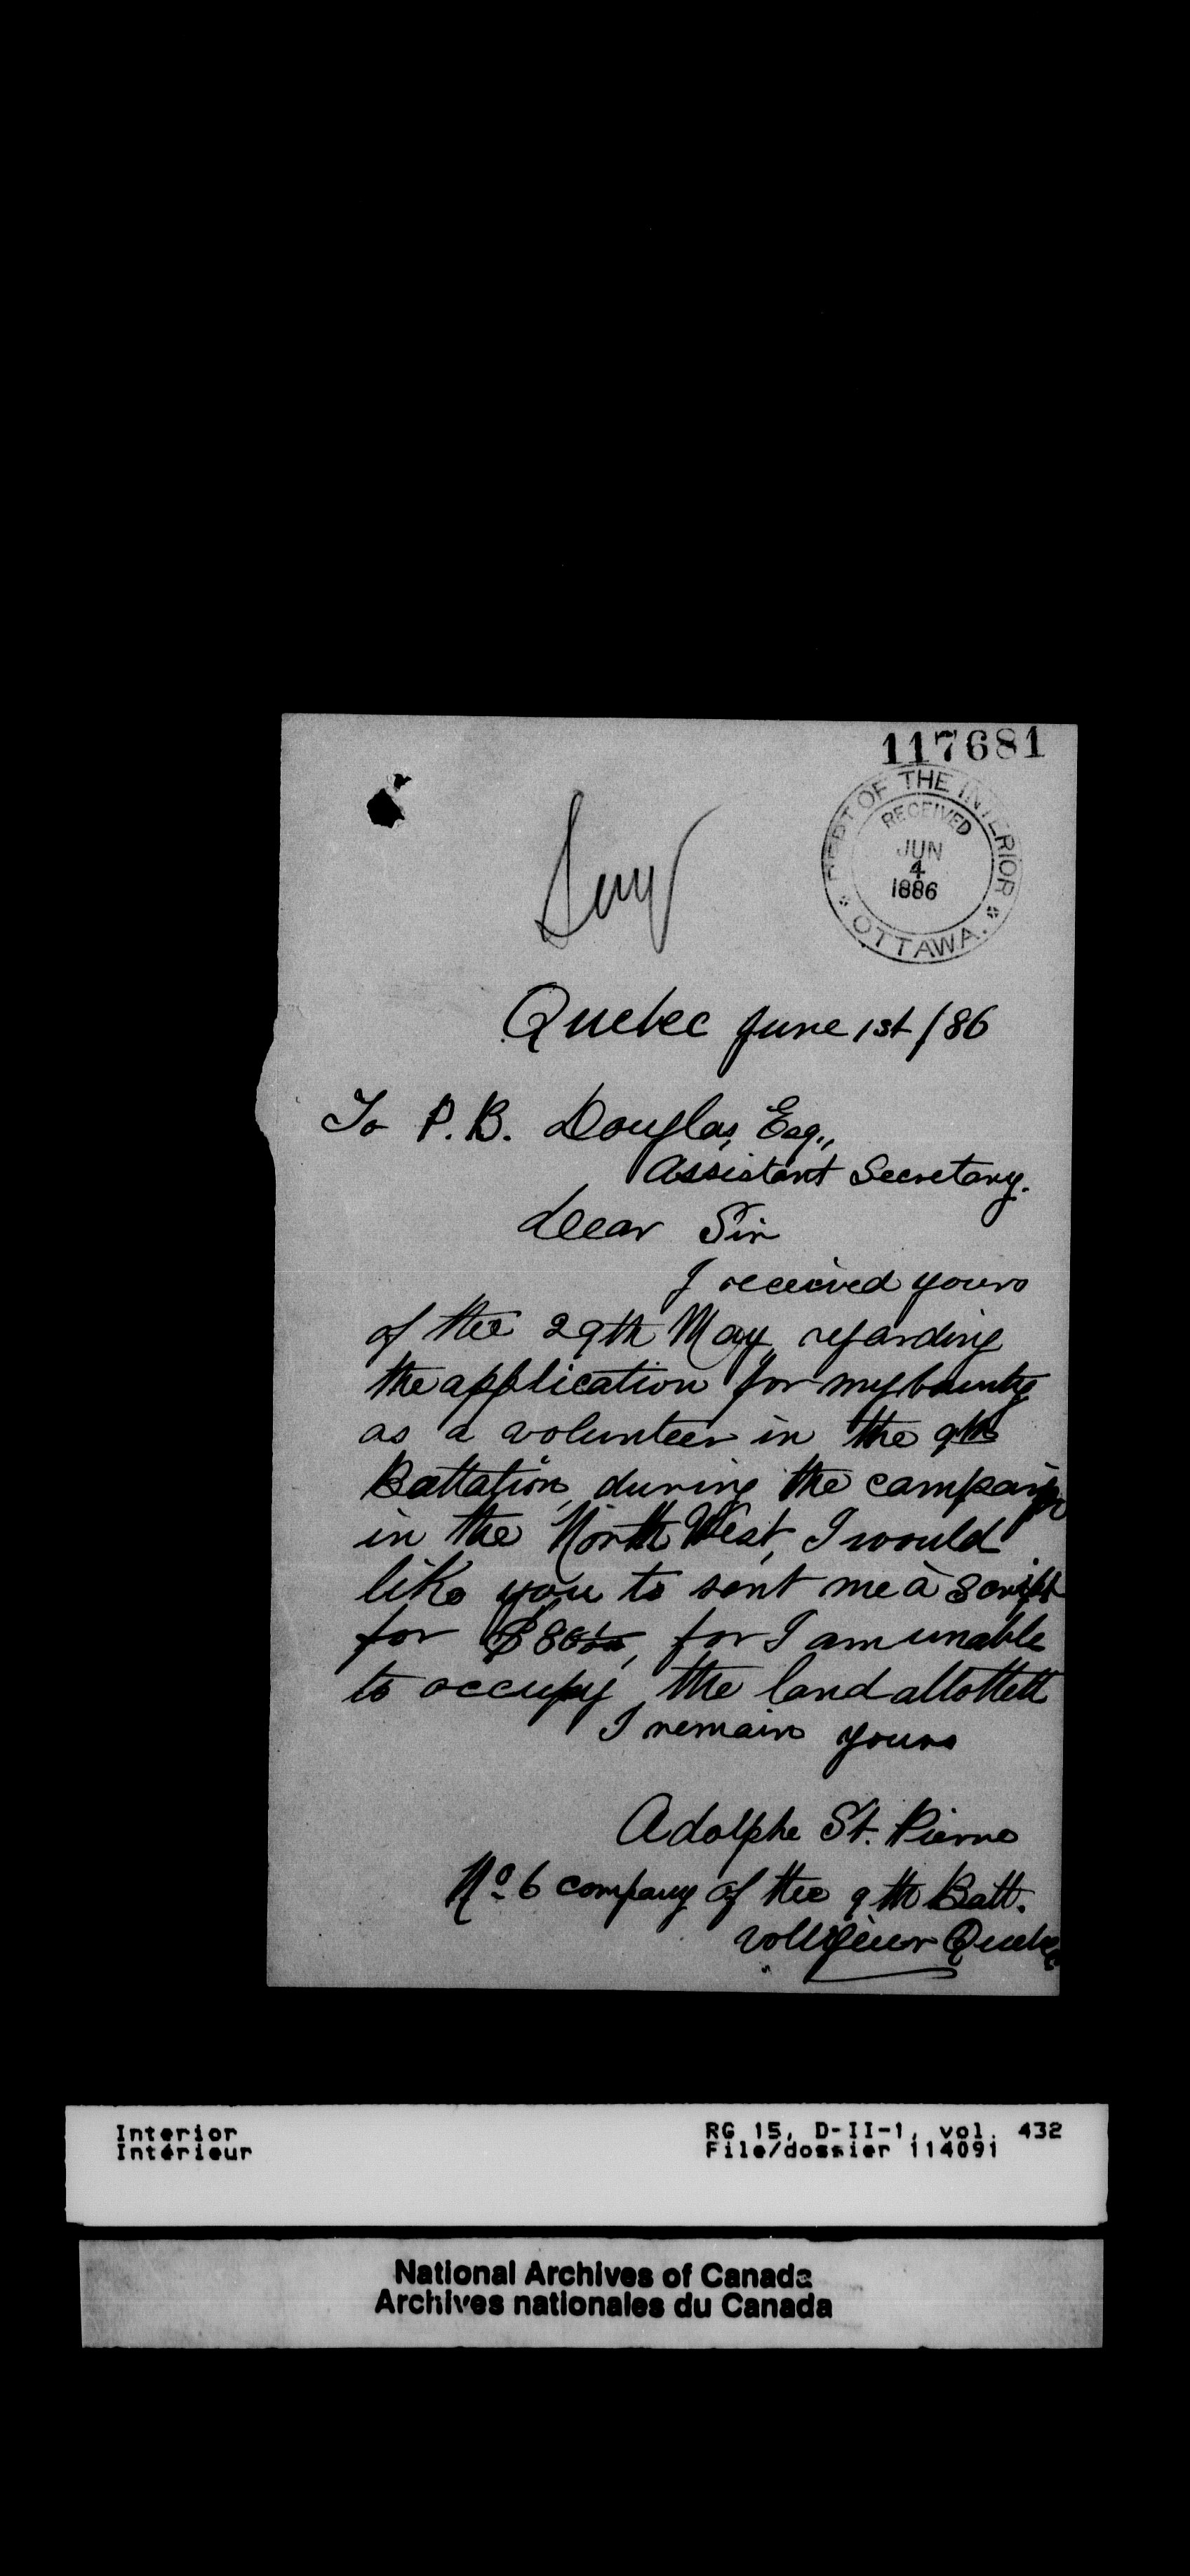 117681
DEPT OF THE INTERIOR
RECEIVED
JUN
4
1886
OTTAWA.
Quebec June 1st /86
To P. B. Douglas, Esq.,
Assistant Secretary.
Dear Sir
I received yours
of the 29th May, regarding
the application for my bounty
as a volunteer in the 9th
Battation, during the campaign
in the North West, I would
like you to sent me à Script
for $80
for I am unable
to occupy the land allottett
I remain yours
Adolphe St. Pierre
No 6 company of the 9th Batt.
Quebec
Interior
Intérieur
RG 15, D-II-1, vol. 432
File/dossier 114091
National Archives of Canada
Archives nationales du Canada